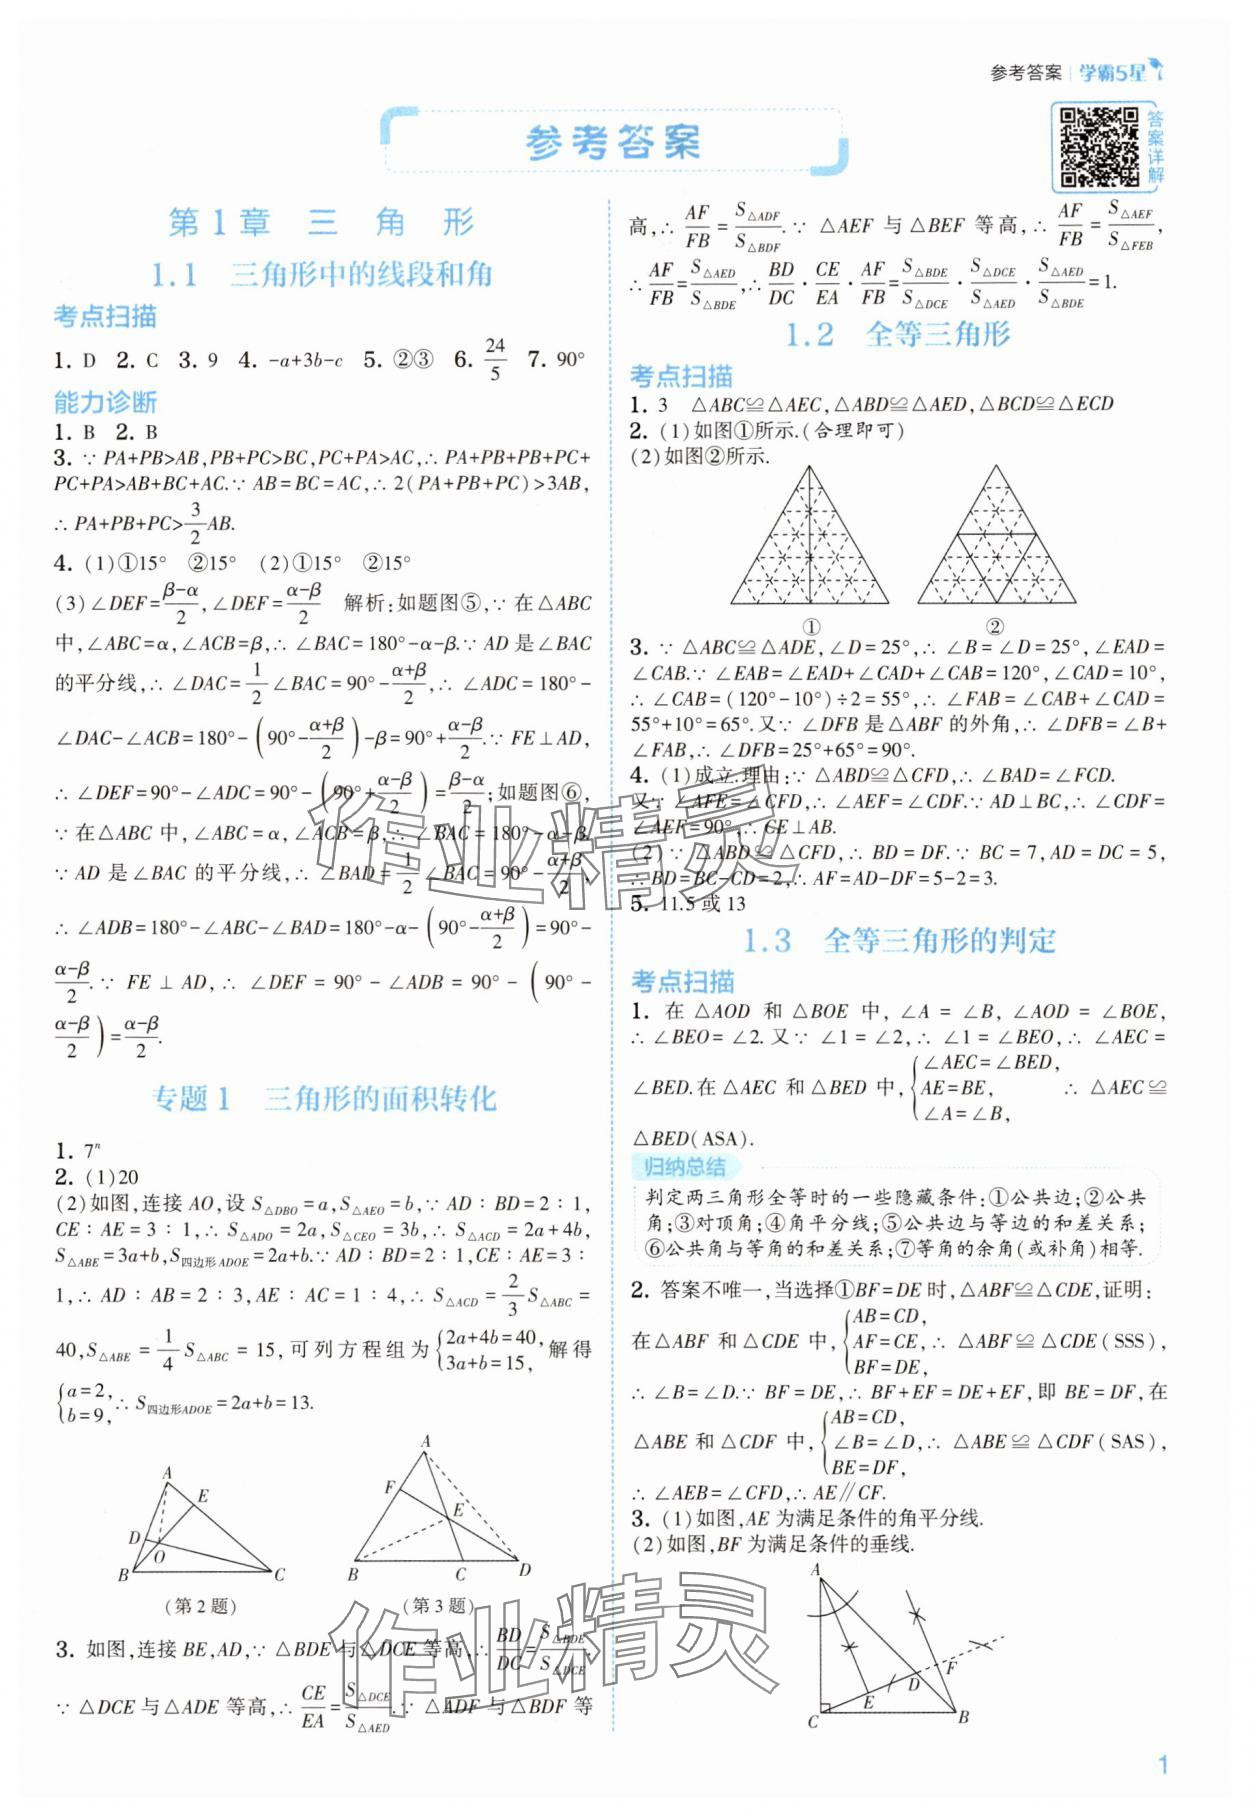 参考答案 学霸5星
参考答案
答案详解
第1章 三角形
1.1 三角形中的线段和角
考点扫描
1. D 2. C 3. 9 4. -a+3b-c 5. ②③ 6. 24/5 7. 90°
能力诊断
1. B 2. B
3. ∵ PA+PB>AB,PB+PC>BC,PC+PA>AC,∴ PA+PB+PB+PC+
PC+PA>AB+BC+AC.∵ AB=BC=AC,∴ 2(PA+PB+PC)>3AB,
∴ PA+PB+PC>3/2AB.
4. (1)①15° ②15° (2)①15° ②15°
(3)∠DEF=(β-α)/2,∠DEF=(α-β)/2 解析:如题图⑤,∵ 在△ABC
中,∠ABC=α,∠ACB=β,∴ ∠BAC=180°-α-β.∵ AD 是∠BAC
的平分线,∴ ∠DAC=1/2∠BAC=90°-(α+β)/2,∴ ∠ADC=180°-
∠DAC-∠ACB=180°-(90°-(α+β)/2)-β=90°+(α-β)/2.∵ FE⊥AD,
∴ ∠DEF=90°-∠ADC=90°-(90°+(α-β)/2)=(β-α)/2;如题图⑥,
∵ 在△ABC 中,∠ABC=α,∠ACB=β,∴ ∠BAC=180°-α-β.
∵ AD 是∠BAC 的平分线,∴ ∠BAD=1/2∠BAC=90°-(α+β)/2,
∴ ∠ADB=180°-∠ABC-∠BAD=180°-α-(90°-(α+β)/2)=90°-
(α-β)/2.∵ FE⊥AD,∴ ∠DEF=90°-∠ADB=90°-(90°-
(α-β)/2)=(α-β)/2.
专题1 三角形的面积转化
1. 7ⁿ
2. (1)20
(2)如图,连接 AO,设 S△DBO=a,S△AEO=b,∵ AD∶BD=2∶1,
CE∶AE=3∶1,∴ S△ADO=2a,S△CEO=3b,∴ S△ACD=2a+4b,
S△ABE=3a+b,S四边形ADOE=2a+b.∵ AD∶BD=2∶1,CE∶AE=3∶
1,∴ AD∶AB=2∶3,AE∶AC=1∶4,∴ S△ACD=2/3S△ABC=
40,S△ABE=1/4S△ABC=15,可列方程组为{2a+4b=40, 3a+b=15,解得
{a=2, b=9,∴ S四边形ADOE=2a+b=13.
A
E
D
O
B
C
(第2题)
A
F
E
B
C
D
(第3题)
3. 如图,连接 BE,AD,∵ △BDE 与△DCE 等高,∴ BD/DC=S△BDE/S△DCE.
∵ △DCE 与△ADE 等高,∴ CE/EA=S△DCE/S△AED.∵ △ADF 与△BDF 等
高,∴ AF/FB=S△ADF/S△BDF.∵ △AEF 与△BEF 等高,∴ AF/FB=S△AEF/S△FEB,
∴ AF/FB=S△AED/S△BDE,∴ BD/DC·CE/EA·AF/FB=S△BDE/S△DCE·S△DCE/S△AED·S△AED/S△BDE=1.
1.2 全等三角形
考点扫描
1. 3 △ABC≌△AEC,△ABD≌△AED,△BCD≌△ECD
2. (1)如图①所示.(合理即可)
(2)如图②所示.
①
②
3. ∵ △ABC≌△ADE,∠D=25°,∴ ∠B=∠D=25°,∠EAD=
∠CAB.∵ ∠EAB=∠EAD+∠CAD+∠CAB=120°,∠CAD=10°,
∴ ∠CAB=(120°-10°)÷2=55°,∴ ∠FAB=∠CAB+∠CAD=
55°+10°=65°.又∵ ∠DFB 是△ABF 的外角,∴ ∠DFB=∠B+
∠FAB,∴ ∠DFB=25°+65°=90°.
4. (1)成立.理由:∵ △ABD≌△CFD,∴ ∠BAD=∠FCD.
又∵ ∠AFE=∠CFD,∴ ∠AEF=∠CDF.∵ AD⊥BC,∴ ∠CDF=
∠AEF=90°,∴ CE⊥AB.
(2)∵ △ABD≌△CFD,∴ BD=DF.∵ BC=7,AD=DC=5,
∴ BD=BC-CD=2,∴ AF=AD-DF=5-2=3.
5. 11.5 或 13
1.3 全等三角形的判定
考点扫描
1. 在△AOD 和△BOE 中,∠A=∠B,∠AOD=∠BOE,
∴ ∠BEO=∠2.又∵ ∠1=∠2,∴ ∠1=∠BEO,∴ ∠AEC=
∠BED.在△AEC 和△BED 中,{∠AEC=∠BED, AE=BE, ∠A=∠B, ∴ △AEC≌
△BED(ASA).
归纳总结
判定两三角形全等时的一些隐藏条件:①公共边;②公共
角;③对顶角;④角平分线;⑤公共边与等边的和差关系;
⑥公共角与等角的和差关系;⑦等角的余角(或补角)相等.
2. 答案不唯一,当选择①BF=DE 时,△ABF≌△CDE,证明:
在△ABF 和△CDE 中,{AB=CD, AF=CE, BF=DE,∴ △ABF≌△CDE(SSS),
∴ ∠B=∠D.∵ BF=DE,∴ BF+EF=DE+EF,即 BE=DF,在
△ABE 和△CDF 中,{AB=CD, ∠B=∠D, BE=DF,∴ △ABE≌△CDF(SAS),
∴ ∠AEB=∠CFD,∴ AE∥CF.
3. (1)如图,AE 为满足条件的角平分线.
(2)如图,BF 为满足条件的垂线.
A
D
F
E
C
B
作业精灵
作业精灵
1